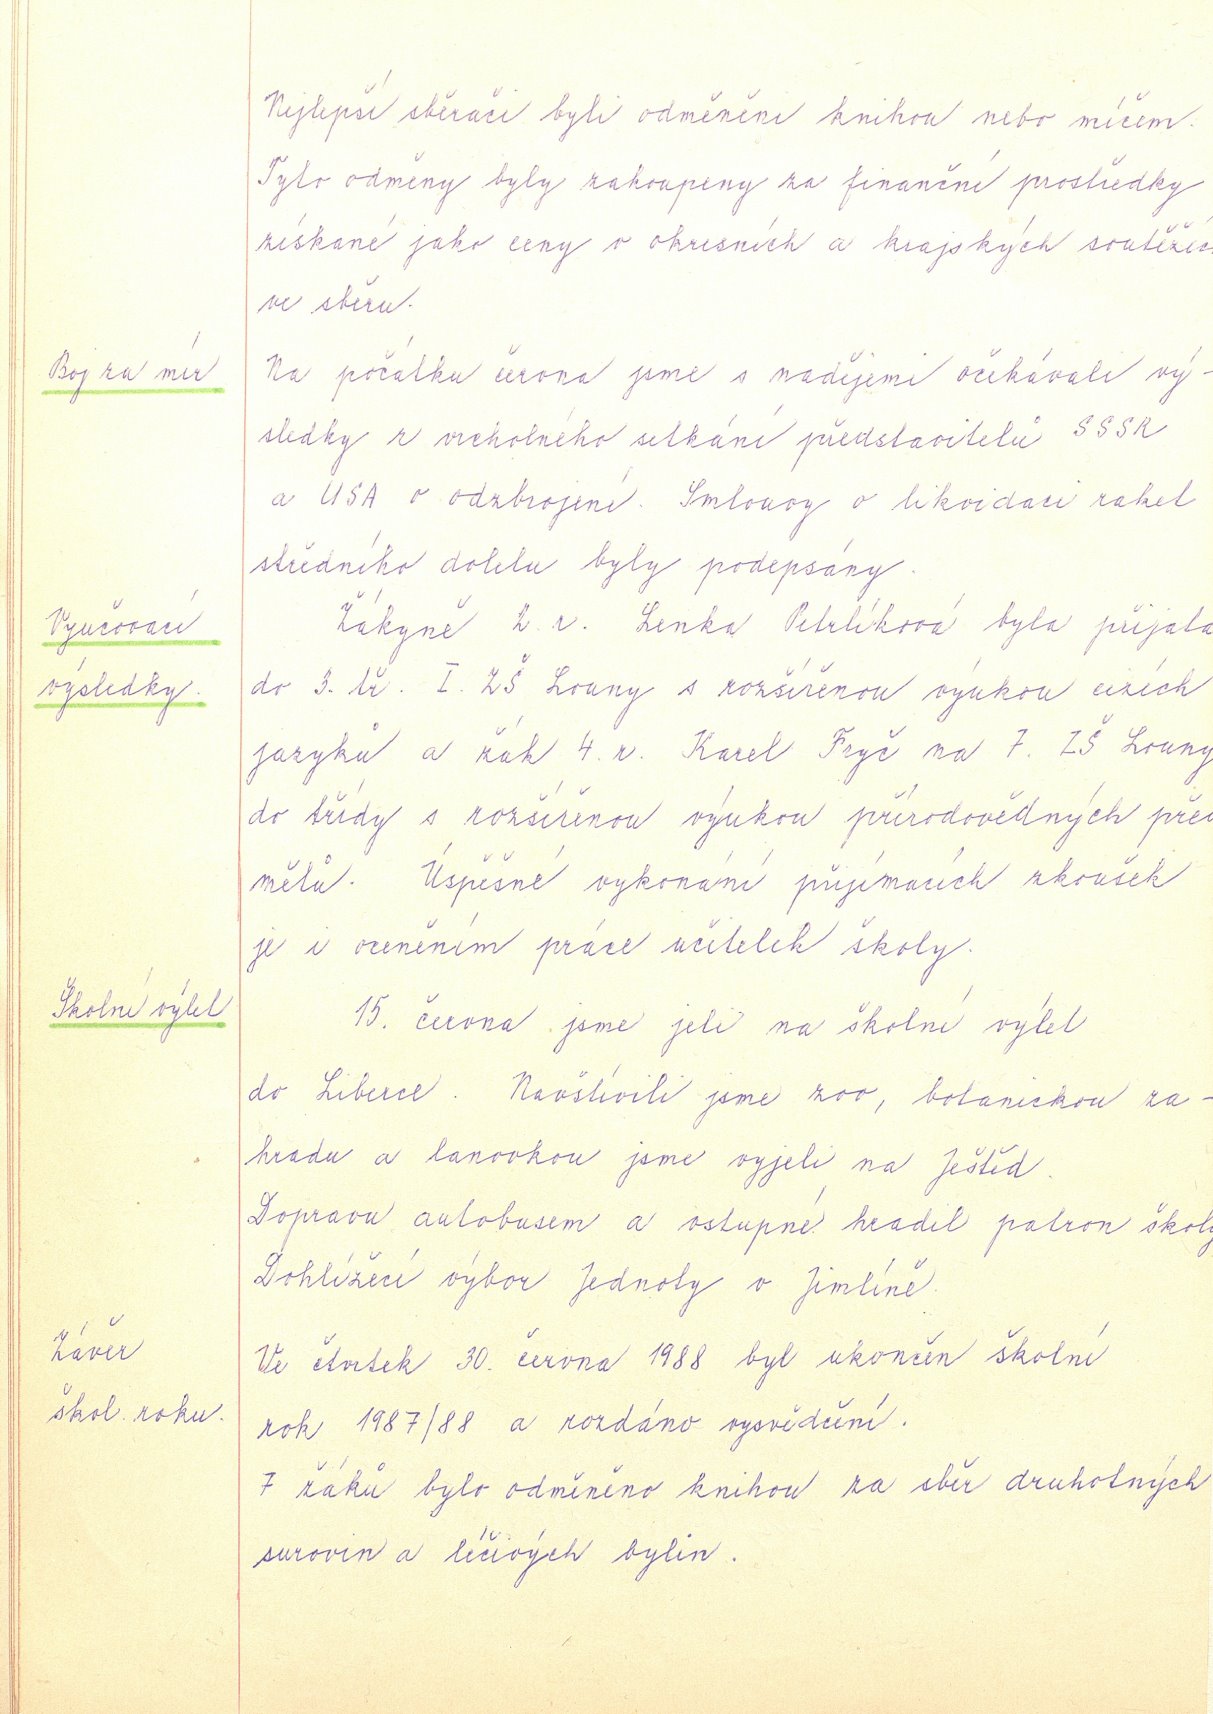 Nejlepší sběrači byli odměněni knihou nebo míčem.
Tyto odměny byly zakoupeny za finanční prostředky
získané jako ceny v okresních a krajských soutěžích
ve sběru.
Boj za mír
Na počátku června jsme s nadějemi očekávali vý-
sledky z vrcholného setkání představitelů SSSR
a USA o odzbrojení. Smlouvy o likvidaci raket
středního doletu byly podepsány.
Vyučovací
výsledky.
Žákyně 2. r. Lenka Petrlíková byla přijata
do 3. tř. I. ZŠ Louny s rozšířenou výukou cizích
jazyků a žák 4. r. Karel Fryč na 7. ZŠ Louny
do třídy s rozšířenou výukou přírodovědných před
mětů. Úspěšné vykonání přijímacích zkoušek
je i oceněním práce učitelek školy.
Školní výlet
15. června jsme jeli na školní výlet
do Liberce. Navštívili jsme zoo, botanickou za-
hradu a lanovkou jsme vyjeli na Ještěd.
Dopravu autobusem a vstupné hradil patron školy
Dohlížecí výbor Jednoty v Jimlíně.
Závěr
škol. roku.
Ve čtvrtek 30. června 1988 byl ukončen školní
rok 1987/88 a rozdáno vysvědčení.
7 žáků bylo odměněno knihou za sběr druhotných
surovin a léčivých bylin.